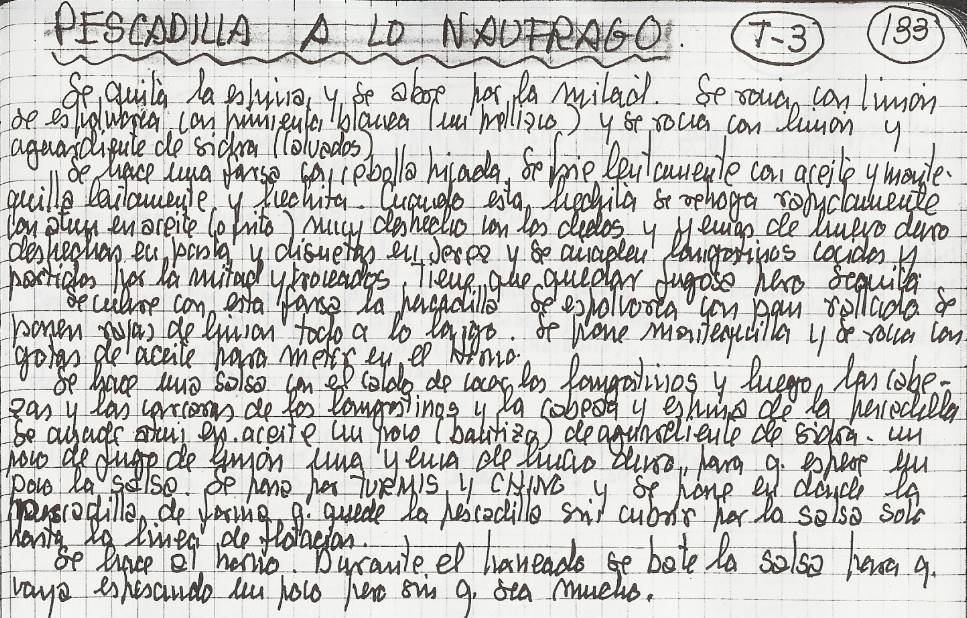 PESCADILLA A LO NAUFRAGO. T-3 133
Se quita la espina y se abre por la mitad. Se rocia con limón
se espolvorea con pimienta blanca (un pellizco) y se rocia con limon y
aguardiente de sidra (calvados)
Se hace una farsa con cebolla picada. Se frie lentamente con aceite y mante-
quilla lentamente y hechita. Cuando esta hechita se rehoga rapidamente
con atun en aceite (o frito) muy deshecho con los dedos y yemas de huevo duro
deshechas en pasta y disueltas en Jerez y se añaden langostinos cocidos y
partidos por la mitad y troceados. Tiene que quedar jugosa pero sequita
Se cubre con esta farsa la pescadilla Se espolvorea con pan rallado Se
ponen rajas de limon todo a lo largo. Se pone mantequilla y se rocia con
gotas de aceite para meter en el horno.
Se hace una salsa con el caldo de cocer los langostinos y luego las cabe-
zas y las carcasas de los langostinos y la cabeza y espina de la pescadilla
Se añade atun en aceite un poco (batiza) de aguardiente de sidra. un
poco de jugo de limón una yema de huevo duro, para q. espese un
poco la salsa. Se pasa por TURMIS y CHINO y se pone en donde la
pescadilla de forma q. quede la pescadilla sin cubrir por la salsa solo
hasta la linea de flotacion.
Se hace al horno. Durante el horneado se bate la salsa para q.
vaya espesando un poco pero sin q. sea mucho.